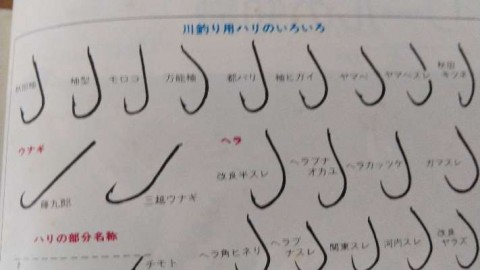 川釣り用ハリのいろいろ
秋田袖
袖型
モロコ
万能袖
都バリ
袖ヒガイ
ヤマベ
ヤマベスレ
秋田
キツネ
ウナギ
ヘラ
藤九郎
三越ウナギ
改良半スレ
ヘラブナ
オカユ
ヘラカッツケ
ガマスレ
ハリの部分名称
チモト
ヘラ角ヒネリ
ヘラブ
ナスレ
関東スレ
河内スレ
改良
ヤラズ